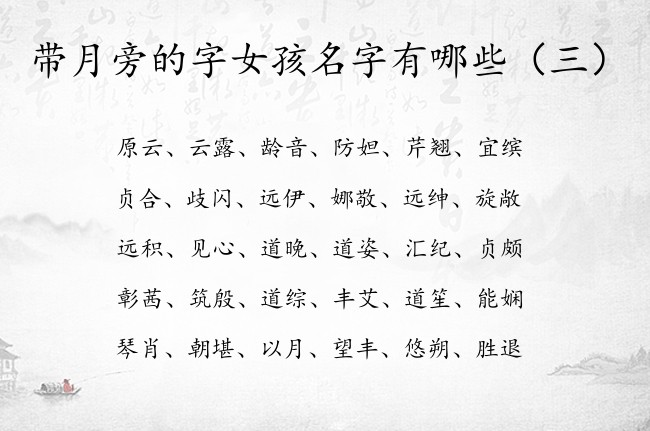 带月旁的字女孩名字有哪些（三）
原云、云露、龄音、防妲、芹翘、宜缤
贞合、歧闪、远伊、娜敬、远绅、旋敞
远积、见心、道晚、道姿、汇纪、贞颇
彰茜、筑殷、道综、丰艾、道笙、能娴
琴肖、朝堪、以月、望丰、悠朔、胜退